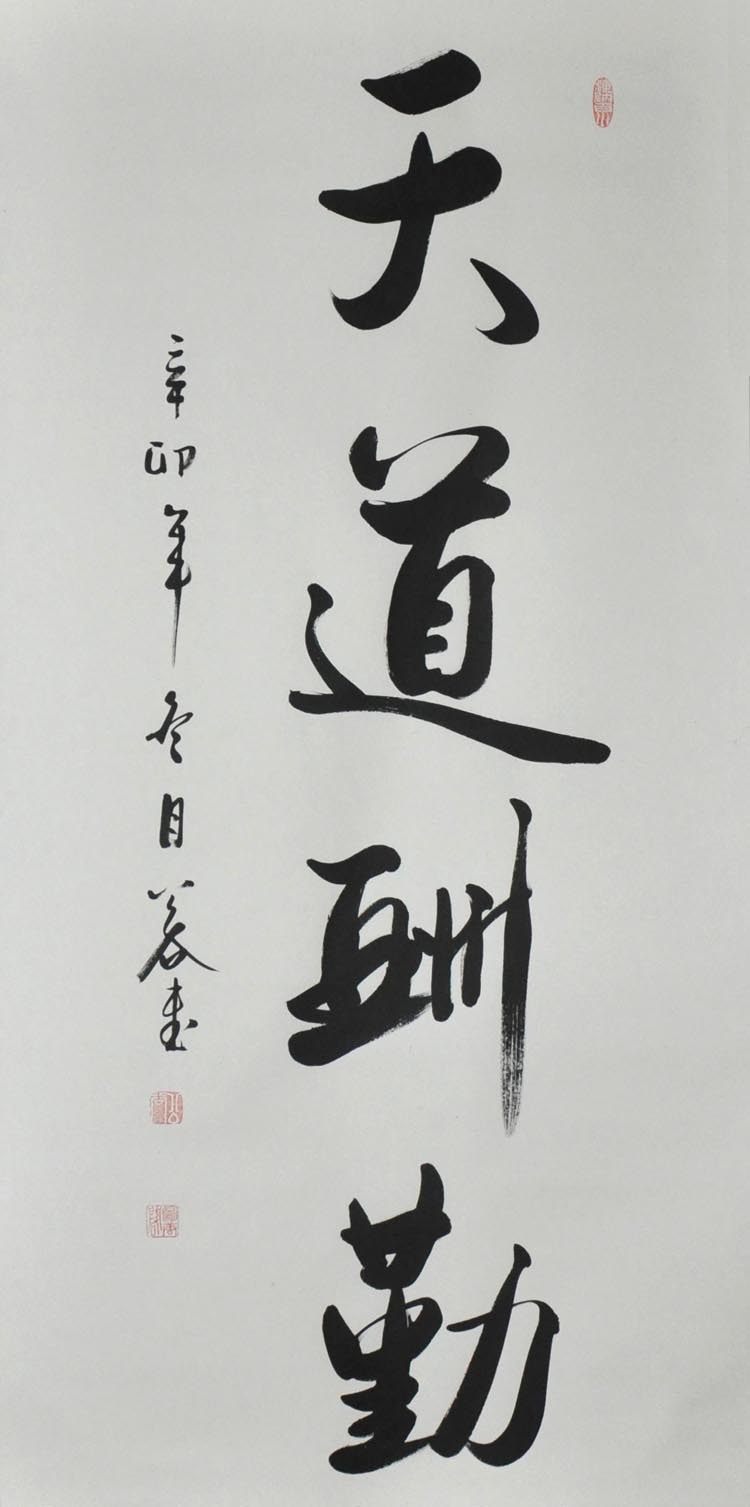 天道酬勤
辛卯年冬月